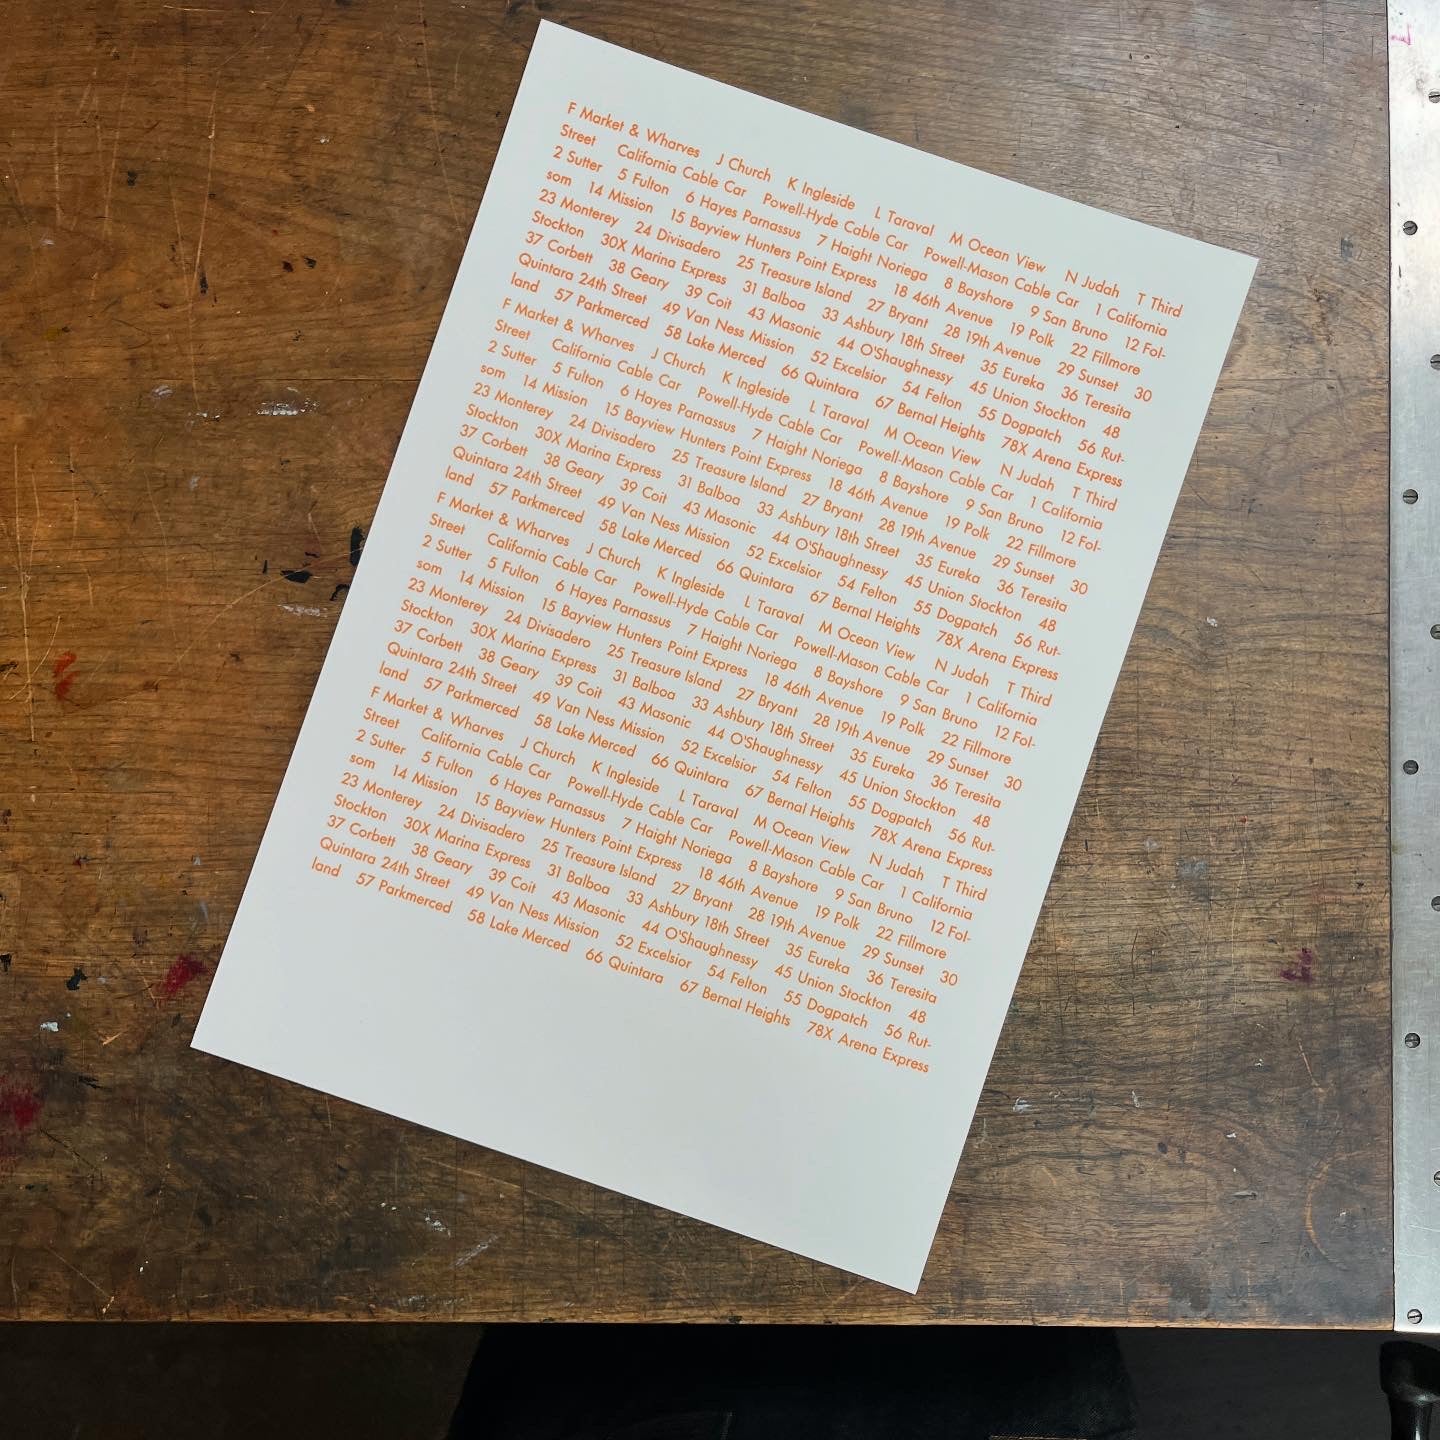 F Market & Wharves J Church K Ingleside L Taraval M Ocean View N Judah T Third
Street California Cable Car Powell-Hyde Cable Car Powell-Mason Cable Car 1 California
2 Sutter 5 Fulton 6 Hayes Parnassus 7 Haight Noriega 8 Bayshore 9 San Bruno 12 Fol-
som 14 Mission 15 Bayview Hunters Point Express 18 46th Avenue 19 Polk 22 Fillmore
23 Monterey 24 Divisadero 25 Treasure Island 27 Bryant 28 19th Avenue 29 Sunset 30
Stockton 30X Marina Express 31 Balboa 33 Ashbury 18th Street 35 Eureka 36 Teresita
37 Corbett 38 Geary 39 Coit 43 Masonic 44 O'Shaughnessy 45 Union Stockton 48
Quintara 24th Street 49 Van Ness Mission 52 Excelsior 54 Felton 55 Dogpatch 56 Rut-
land 57 Parkmerced 58 Lake Merced 66 Quintara 67 Bernal Heights 78X Arena Express
F Market & Wharves J Church K Ingleside L Taraval M Ocean View N Judah T Third
Street California Cable Car Powell-Hyde Cable Car Powell-Mason Cable Car 1 California
2 Sutter 5 Fulton 6 Hayes Parnassus 7 Haight Noriega 8 Bayshore 9 San Bruno 12 Fol-
som 14 Mission 15 Bayview Hunters Point Express 18 46th Avenue 19 Polk 22 Fillmore
23 Monterey 24 Divisadero 25 Treasure Island 27 Bryant 28 19th Avenue 29 Sunset 30
Stockton 30X Marina Express 31 Balboa 33 Ashbury 18th Street 35 Eureka 36 Teresita
37 Corbett 38 Geary 39 Coit 43 Masonic 44 O'Shaughnessy 45 Union Stockton 48
Quintara 24th Street 49 Van Ness Mission 52 Excelsior 54 Felton 55 Dogpatch 56 Rut-
land 57 Parkmerced 58 Lake Merced 66 Quintara 67 Bernal Heights 78X Arena Express
F Market & Wharves J Church K Ingleside L Taraval M Ocean View N Judah T Third
Street California Cable Car Powell-Hyde Cable Car Powell-Mason Cable Car 1 California
2 Sutter 5 Fulton 6 Hayes Parnassus 7 Haight Noriega 8 Bayshore 9 San Bruno 12 Fol-
som 14 Mission 15 Bayview Hunters Point Express 18 46th Avenue 19 Polk 22 Fillmore
23 Monterey 24 Divisadero 25 Treasure Island 27 Bryant 28 19th Avenue 29 Sunset 30
Stockton 30X Marina Express 31 Balboa 33 Ashbury 18th Street 35 Eureka 36 Teresita
37 Corbett 38 Geary 39 Coit 43 Masonic 44 O'Shaughnessy 45 Union Stockton 48
Quintara 24th Street 49 Van Ness Mission 52 Excelsior 54 Felton 55 Dogpatch 56 Rut-
land 57 Parkmerced 58 Lake Merced 66 Quintara 67 Bernal Heights 78X Arena Express
F Market & Wharves J Church K Ingleside L Taraval M Ocean View N Judah T Third
Street California Cable Car Powell-Hyde Cable Car Powell-Mason Cable Car 1 California
2 Sutter 5 Fulton 6 Hayes Parnassus 7 Haight Noriega 8 Bayshore 9 San Bruno 12 Fol-
som 14 Mission 15 Bayview Hunters Point Express 18 46th Avenue 19 Polk 22 Fillmore
23 Monterey 24 Divisadero 25 Treasure Island 27 Bryant 28 19th Avenue 29 Sunset 30
Stockton 30X Marina Express 31 Balboa 33 Ashbury 18th Street 35 Eureka 36 Teresita
37 Corbett 38 Geary 39 Coit 43 Masonic 44 O'Shaughnessy 45 Union Stockton 48
Quintara 24th Street 49 Van Ness Mission 52 Excelsior 54 Felton 55 Dogpatch 56 Rut-
land 57 Parkmerced 58 Lake Merced 66 Quintara 67 Bernal Heights 78X Arena Express